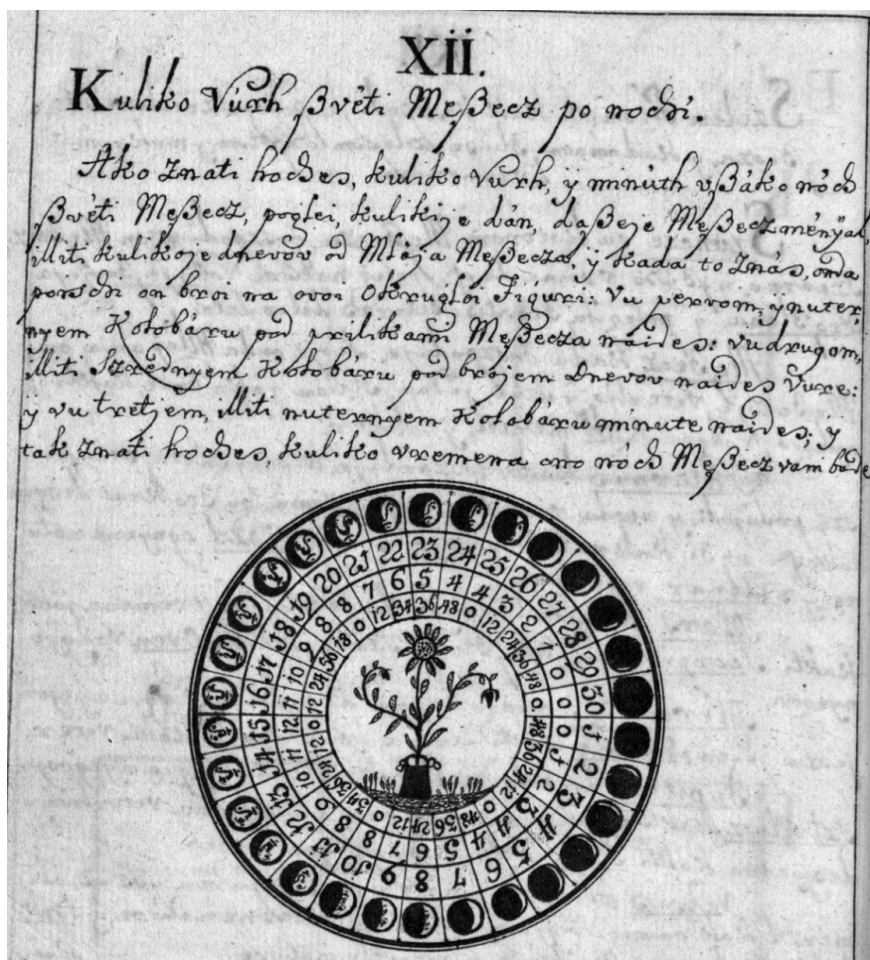 Xii.
Kuliko Vúrh ßvěti Meßecz po nochi.
Ako znati hoches, kuliko Vurh, y minúth vßáko nóch
ßvěti Meßecz, poglei, kulikije dán, daßeje Meßecz ményal,
illiti kulikoje dnevov od Mlája Meßecza, y kada to znás, onda
poischi on broi na ovoi Okrugloi Figuri: Vu pervom, ynuter,
nyem Kolobáru pod prilikami Meßecza naides: vudrugom,
illiti Szrednyem Kolobáru pod brojem Dnevov naides Vure:
y vu tretjem, illiti nuternyem Kolobáru minute naides; y
tak znati hoches, kuliko vremena ono nóch Meßecz vam bude
1 2 3 4 5 6 7 8 9 10 11 12 13 14 15 16 17 18 19 20 21 22 23 24 25 26 27 28 29 30
0 1 2 3 4 4 5 6 7 8 8 9 10 11 12 12 11 10 9 8 8 7 6 5 4 4 3 2 1 0
48 36 24 12 0 48 36 24 12 0 48 36 24 12 0 12 24 36 48 0 12 34 36 48 0 12 24 36 48 0